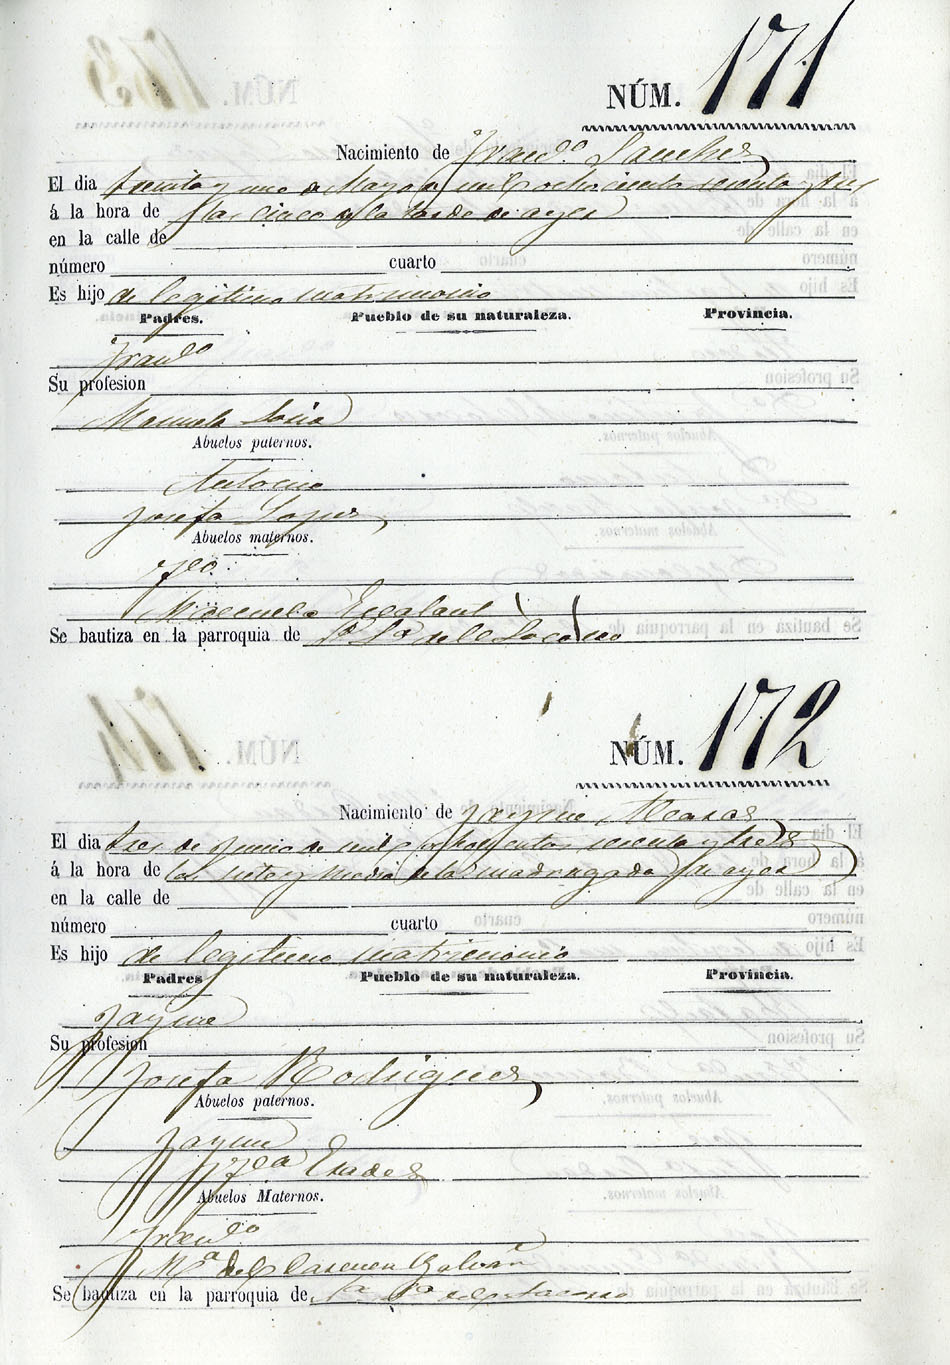 NÚM. 171
Nacimiento de Franco. Sanchez
El dia treinta y uno de Mayo de mil ochocientos sesenta y tres
á la hora de las cinco de la tarde de ayer
en la calle de
número cuarto
Es hijo de legitimo matrimonio
Padres. Pueblo de su naturaleza. Provincia.
Franco
Su profesion
Manuela Soria
Abuelos paternos.
Antonio
Josefa Lopez
Abuelos maternos.
Manuela Escalant
Se bautiza en la parroquia de
NÚM. 172
Nacimiento de Jayme
El dia tres de Junio de mil ochocientos sesenta y tres
á la hora de las siete y media de la madrugada de ayer
en la calle de
número cuarto
Es hijo de legitimo matrimonio
Padres Pueblo de su naturaleza. Provincia.
Jayme
Su profesion
Josefa Rodriguez
Abuelos paternos.
Jayme
Abuelos Maternos.
Franco
Ma del Carmen Galvañ
Se bautiza en la parroquia de